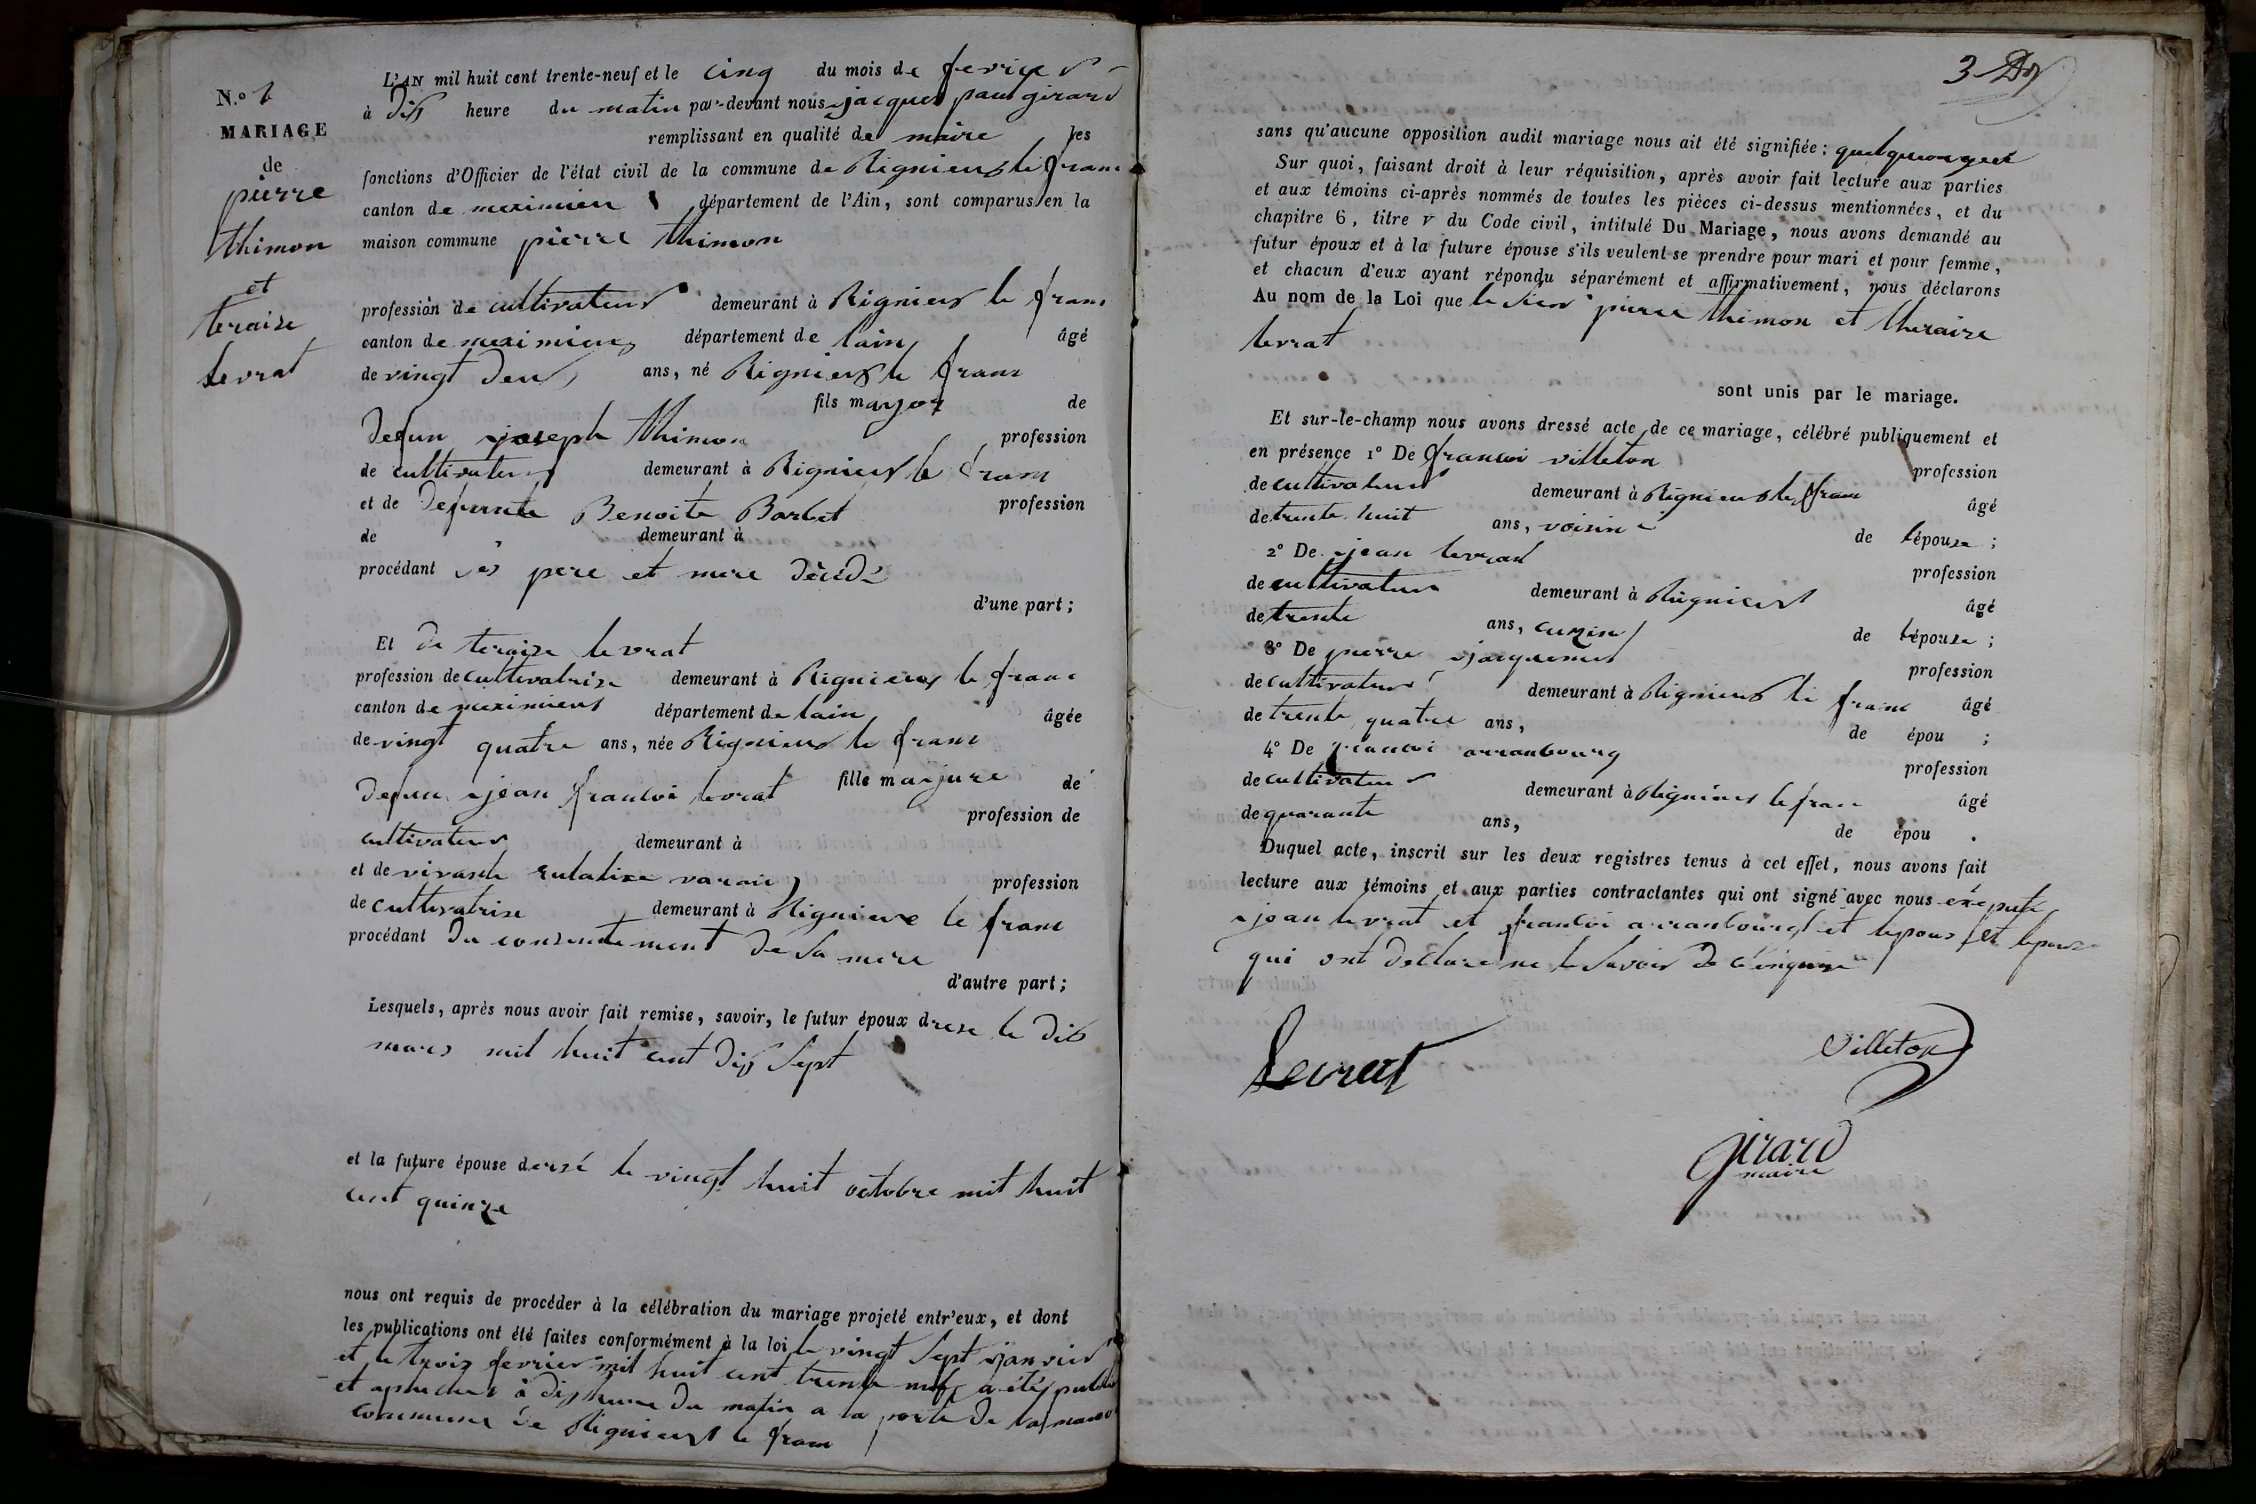 N.º 1
MARIAGE
de
pierre
thimon
et
teraize
levrat
L'AN mil huit cent trente-neuf et le cinq du mois de fevrier
à dix heure du matin par-devant nous jacques paul girard
remplissant en qualité de maire les
fonctions d'Officier de l'état civil de la commune de Rignieux le franc
canton de meximieu département de l'Ain, sont comparus en la
maison commune pierre thimon
profession de cultivateur demeurant à Rignieux le franc
canton de meximieux département de lain âgé
de vingt deux ans, né Rignieux le franc
fils major de
defun joseph thimon profession
de cultivateur demeurant à Rignieux le franc
et de defunte Benoite Barbet profession
de demeurant à
procédant ses pere et mere décédé
d'une part;
Et de teraize levrat
profession de cultivatrise demeurant à Rignieux le franc
canton de meximieux département de lain âgée
de vingt quatre ans, née Rignieux le franc
fille majure de
defun jean francoi levrat profession de
cultivateur demeurant à
et de vivante profession
de cultivatrise demeurant à Rignieux le franc
procédant du consentement de sa mere
d'autre part;
Lesquels, après nous avoir fait remise, savoir, le futur époux drese le dix
mars mil huit cent dix sept
et la future épouse dersé le vingt huit octobre mil huit
cent quinze
nous ont requis de procéder à la célébration du mariage projeté entr'eux, et dont
les publications ont été faites conformément à la loi le vingt sept janvier
et le trois fevrier mil huit cent trente neuf a été
et à dix heure du matin a la porte de la
commune de Rignieux le franc
3
sans qu'aucune opposition audit mariage nous ait été signifiée;
Sur quoi, faisant droit à leur réquisition, après avoir fait lecture aux parties
et aux témoins ci-après nommés de toutes les pièces ci-dessus mentionnées, et du
chapitre 6, titre v du Code civil, intitulé Du Mariage, nous avons demandé au
futur époux et à la future épouse s'ils veulent se prendre pour mari et pour femme,
et chacun d'eux ayant répondu séparément et affirmativement, nous déclarons
Au nom de la Loi que le sieur pierre thimon et theraize
levrat
sont unis par le mariage.
Et sur-le-champ nous avons dressé acte de ce mariage, célébré publiquement et
en présence 1º De francoi villeton profession
de cultivateur demeurant à Rignieux le franc âgé
de trente huit ans, voisin de lépouse;
2º De jean levrat profession
de cultivateur demeurant à Rignieux âgé
de trente ans, cuzin de lépouse;
3º De pierre jacquemet profession
de cultivateur demeurant à Rignieux le franc âgé
de trente quatre ans, de épou ;
4º De francoi arranbourg profession
de cultivateur demeurant à Rignieux le franc âgé
de quarante ans, de épou .
Duquel acte, inscrit sur les deux registres tenus à cet effet, nous avons fait
lecture aux témoins et aux parties contractantes qui ont signé avec nous
jean levrat et francoi arranbourg et lepoux et lepouse
qui ont declare ne le savoir de
Levrat
Villeton
girard
maire